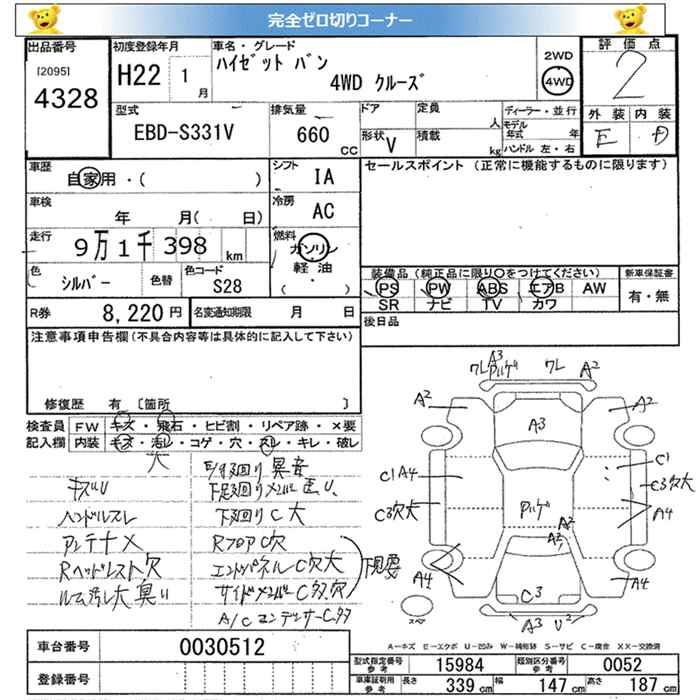 完全ゼロ切りコーナー
出品番号 [2095] 4328
初度登録年月 H22 1月
車名・グレード ハイゼット バン 4WD クルーズ 2WD 4WD
評価点 2
外装 内装
E D
型式 EBD-S331V
排気量 660 CC
ドア 形状 V
定員 人
積載 kg
ディーラー・並行
モデル年式 年
ハンドル 左・右
車歴 自家用・( )
シフト IA
セールスポイント (正常に機能するものに限ります)
車検 年 月( 日)
冷房 AC
走行 9万1千398 km
燃料 ガソリン 軽油 ( ・ )
色 シルバー 色替 色コード S28
装備品 (純正品に限り○をつけてください) 新車保証書
PS PW ABS エアB AW 有・無
SR ナビ TV カワ
R券 8,220円 名変通知期限 月 日
後日品
注意事項申告欄 (不具合内容等は具体的に記入して下さい)
修復歴 有 [箇所 ]
検査員 FW キズ・飛石・ヒビ割・リペア跡・×要
記入欄 内装 キズ・汚レ・コゲ・穴・スレ・キレ・破レ
大
下廻り異音
キズU
下廻りメンバー
ハンドルスレ
下廻りC大
アンテナ×
RフロアC穴
Rヘッドレスト穴
エンドパネルC穴大
下見要
ルーム汚レ大 臭い
サイドメンバーC多穴
A/CコンデンサーC多
A3
ワレ ハゲ ワレ A2
A2 A2
A3
C1 A4 C1
C3穴大 ハゲ C3穴大
A4
A2
A2
A4 A4
C3
A3 U2
スペア
A-キズ E-エクボ U-凹み W-補修跡 S-サビ C-腐食 XX-交換済
車台番号 0030512
型式指定番号 参考 15984 類別区分番号 参考 0052
登録番号
車庫証明用 参考 長さ 339cm 幅 147cm 高さ 187cm